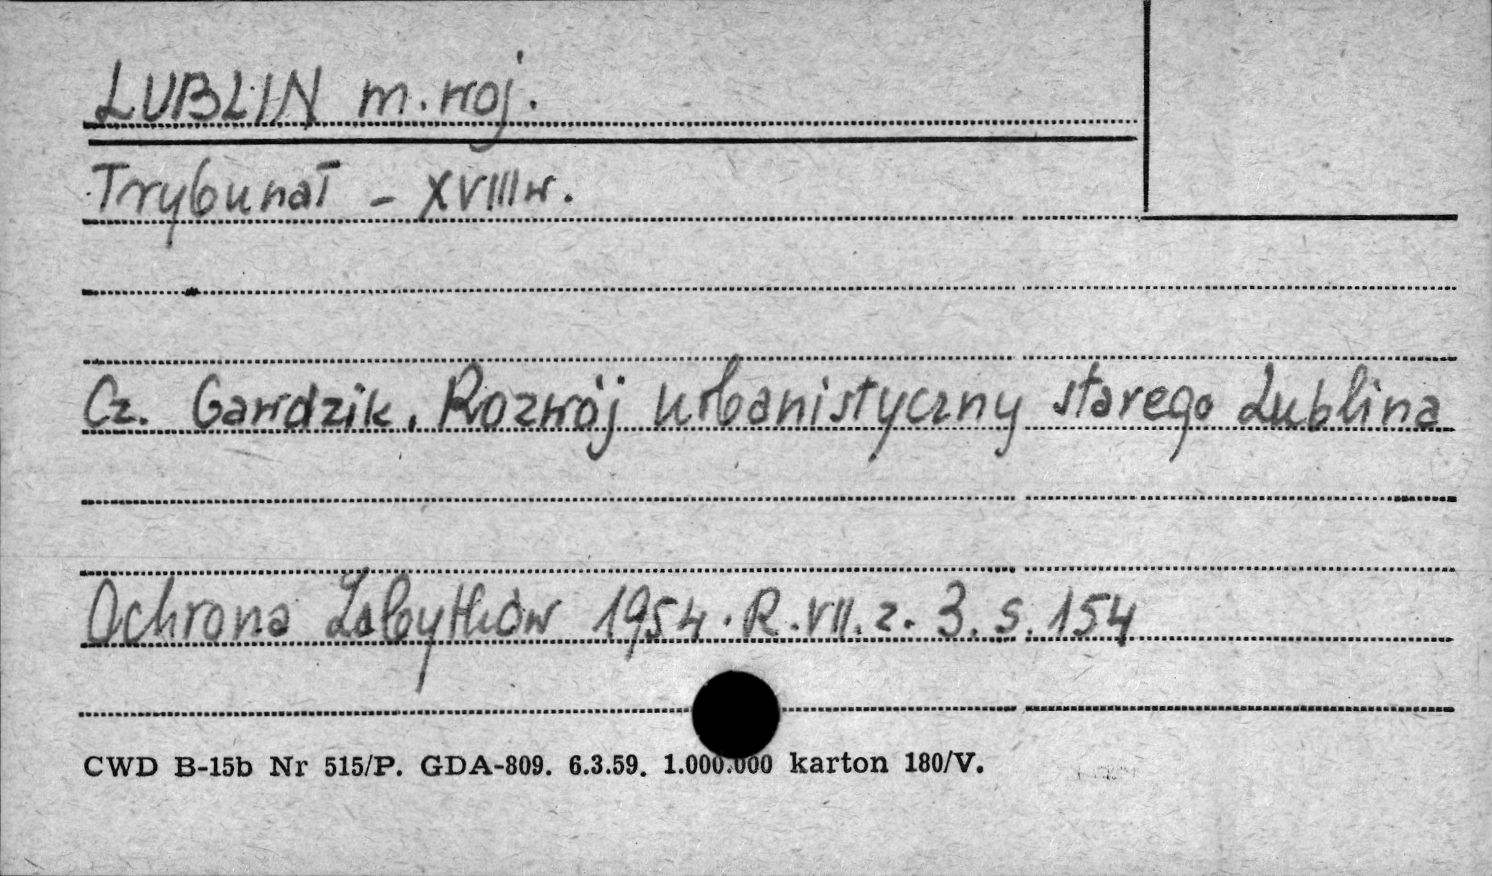 LUBLIN m. woj.
Trybunał - XVIII w.
Cz. Gawdzik. Rozwój urbanistyczny starego Lublina
Ochrona Zabytków 1954. R. VII. z. 3. s. 154
CWD B-15b Nr 515/P. GDA-809. 6.3.59. 1.000.000 karton 180/V.